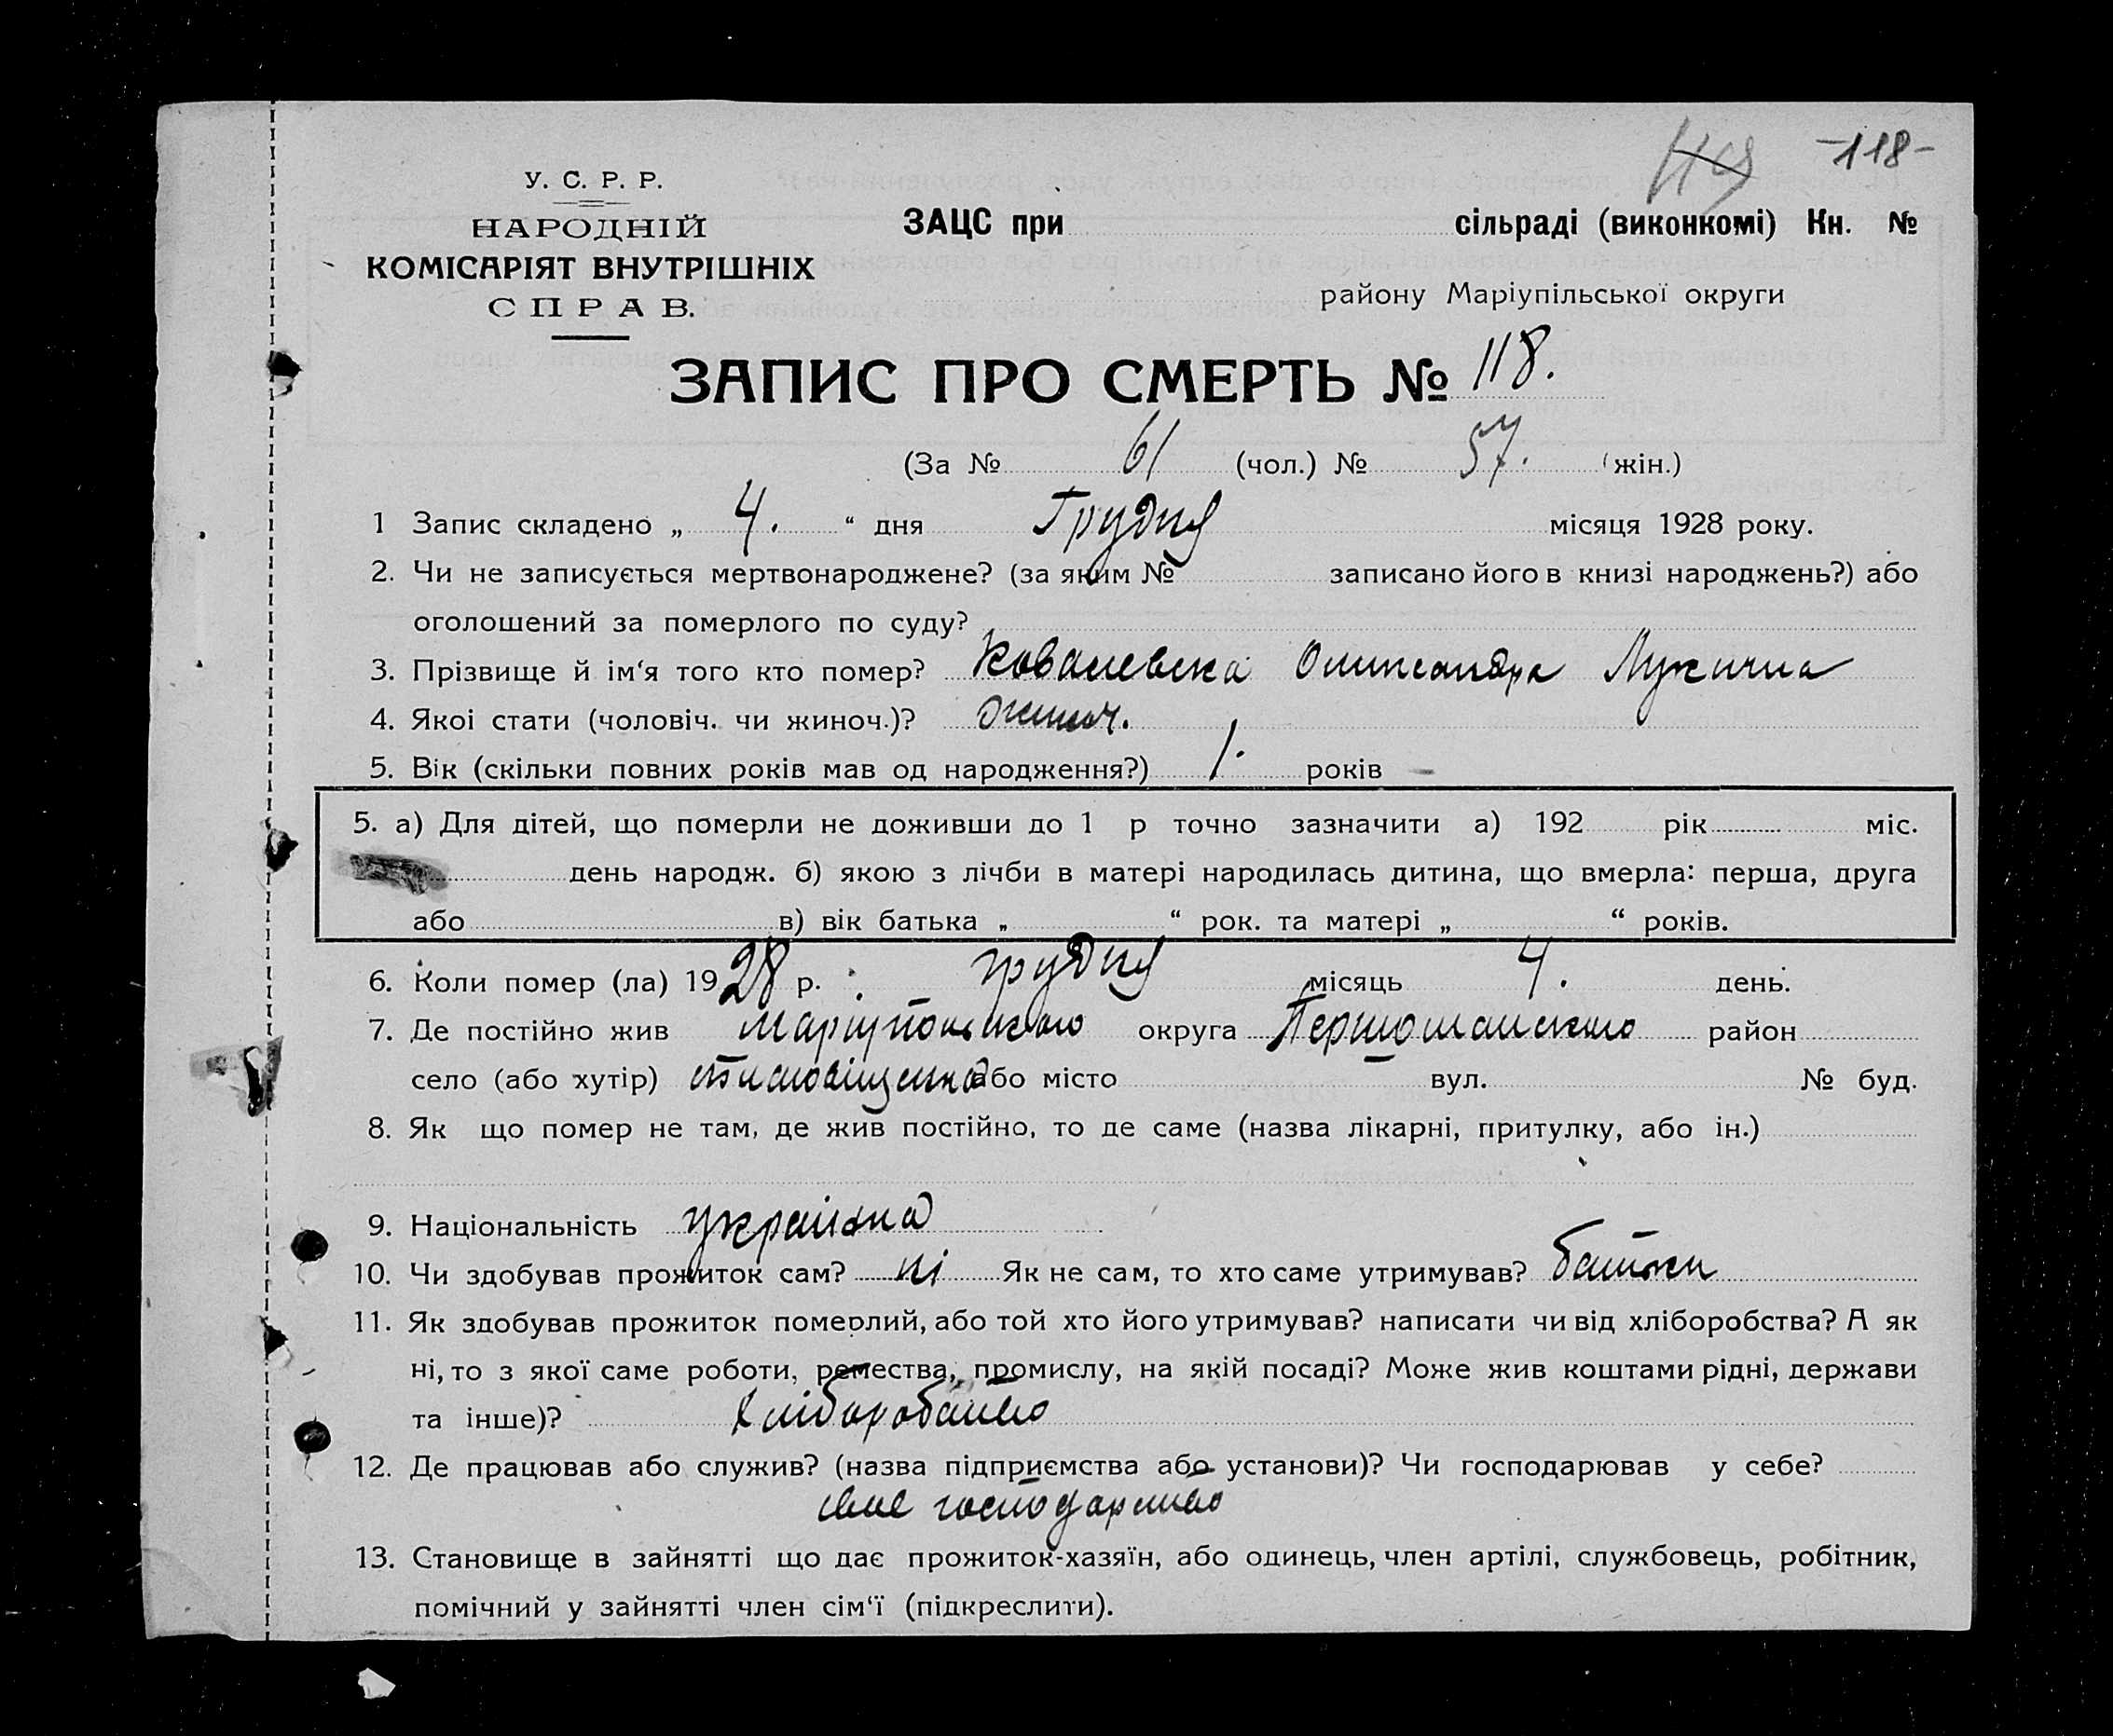 119 -118-
У. С. Р. Р.
НАРОДНІЙ
КОМІСАРІЯТ ВНУТРІШНІХ
СПРАВ.
ЗАЦС при сільраді (виконкомі) Кн. №
району Маріупільської округи
ЗАПИС ПРО СМЕРТЬ № 118.
(За № 61 (чол.) № 57. (жін.)
1 Запис складено „ 4. “ дня Грудня місяця 1928 року.
2. Чи не записується мертвонароджене? (за яким № записано його в книзі народжень?) або
оголошений за померлого по суду?
3. Прізвище й ім‘я того кто помер? Ковалевска Олександра Лукична
4. Якоі стати (чоловіч. чи жиноч.)? жиноч.
5. Вік (скільки повних років мав од народження?) 1. років
5. а) Для дітей, що померли не доживши до 1 р точно зазначити а) 192 рік міс.
день народж. б) якою з лічби в матері народилась дитина, що вмерла: перша, друга
або в) вік батька „ “ рок. та матері „ “ років.
6. Коли помер (ла) 1928 р. грудня місяць 4. день.
7. Де постійно жив округа район
село (або хутір) або місто вул. № буд.
8. Як що помер не там, де жив постійно, то де саме (назва лікарні, притулку, або ін.)
9. Національність украінка
10. Чи здобував прожиток сам? ні Як не сам, то хто саме утримував? батьки
11. Як здобував прожиток померлий, або той хто його утримував? написати чи від хліборобства? А як
ні, то з якої саме роботи, ремества, промислу, на якій посаді? Може жив коштами рідні, держави
та інше)? хліборобство
12. Де працював або служив? (назва підприємства або установи)? Чи господарював у себе?
своє господарство
13. Становище в зайнятті що дає прожиток-хазяїн, або одинець, член артілі, службовець, робітник,
помічний у зайнятті член сім‘ї (підкреслити).